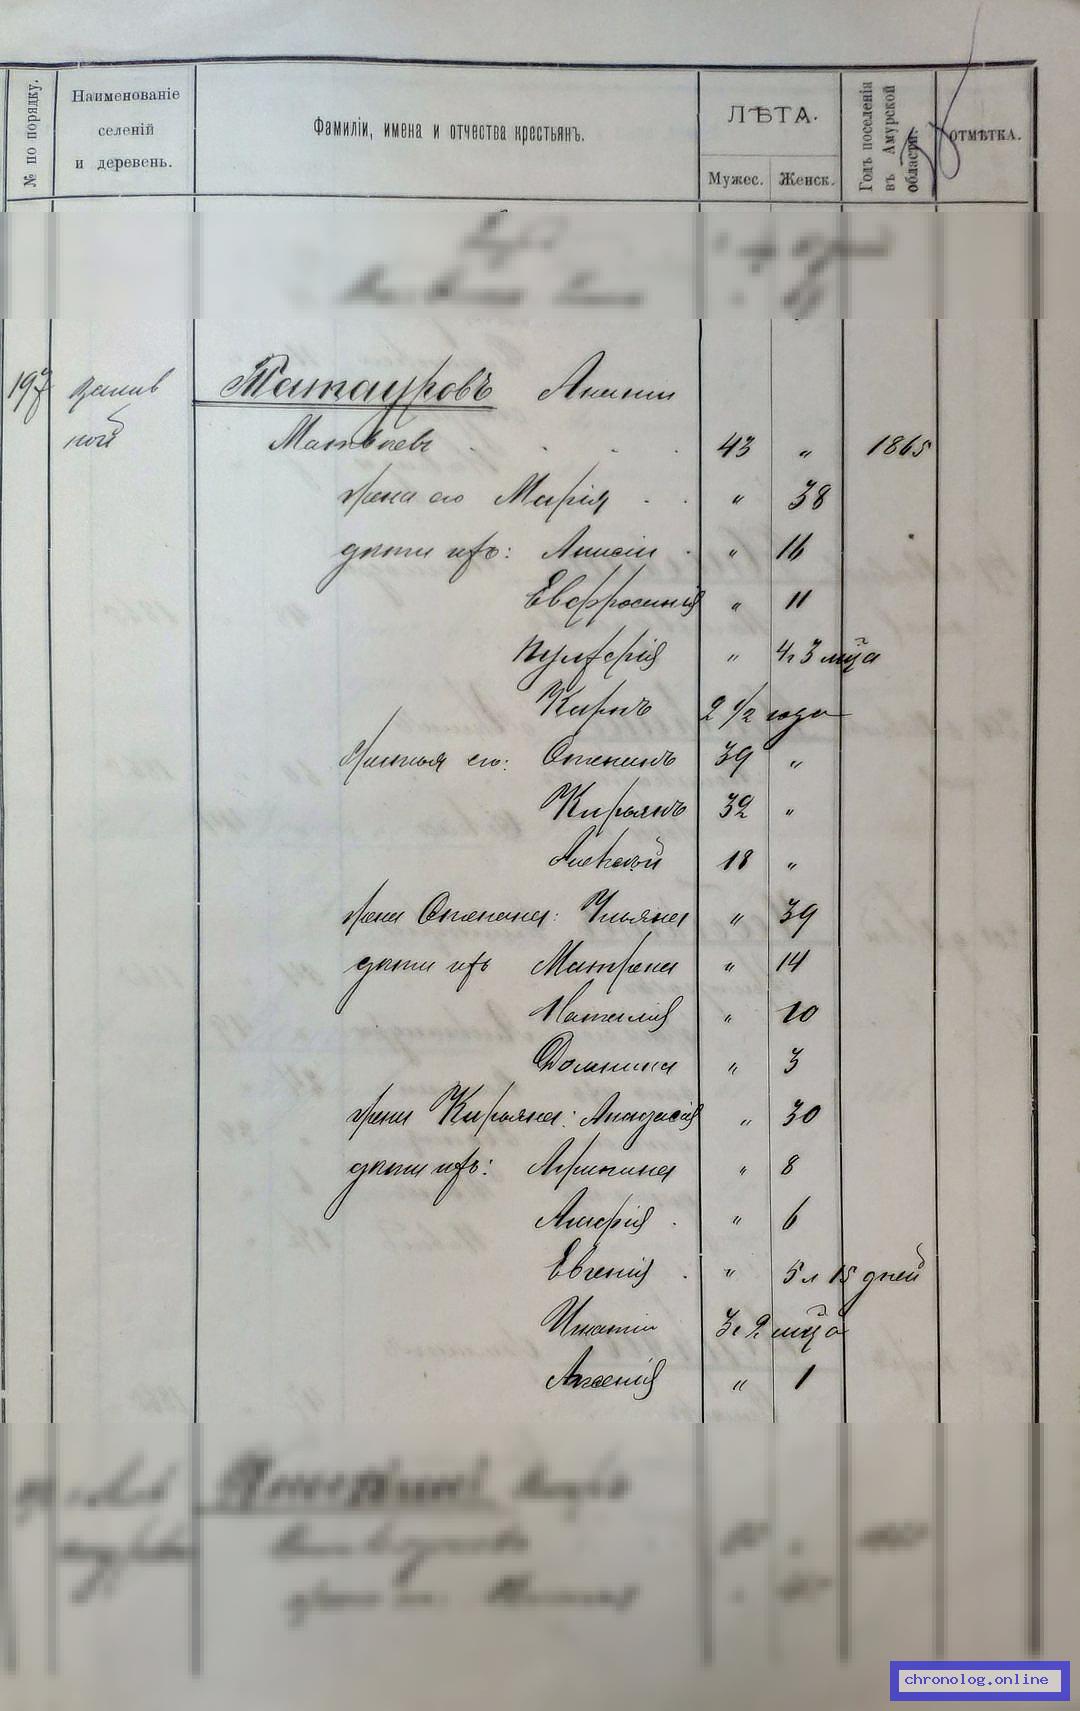 № по порядку.
Наименованіе
селеній
и деревень.
Фамиліи, имена и отчества крестьянъ.
ЛѢТА.
Мужес.
Женск.
Годъ поселенія
въ Амурской
области.
ОТМѢТКА.
197 Татауровъ
Матвѣевъ 43 " 1865
жена его Марія " 38
дѣти ихъ: Анисія " 16
Евфросинія " 11
Пулхерія " 4 г 3 мца
Киръ 2 1/2 года
братья его: Степанъ 39 "
Кирьянъ 32 "
Алексѣй 18 "
жена Степана: Ульяна " 39
дѣти ихъ Матрена " 14
Наталія " 10
Домнина " 3
жена Кирьяна: " 30
дѣти ихъ: Агрипина " 8
" 6
Евгенія " 5 л 15 дней
Игнатій 3 г 2 мца
" 1
chronolog.online